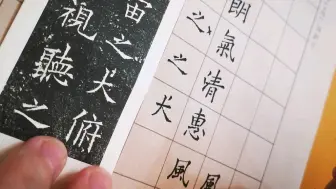 風
朗氣清惠風
之之犬
宙之犬俯
視聽之